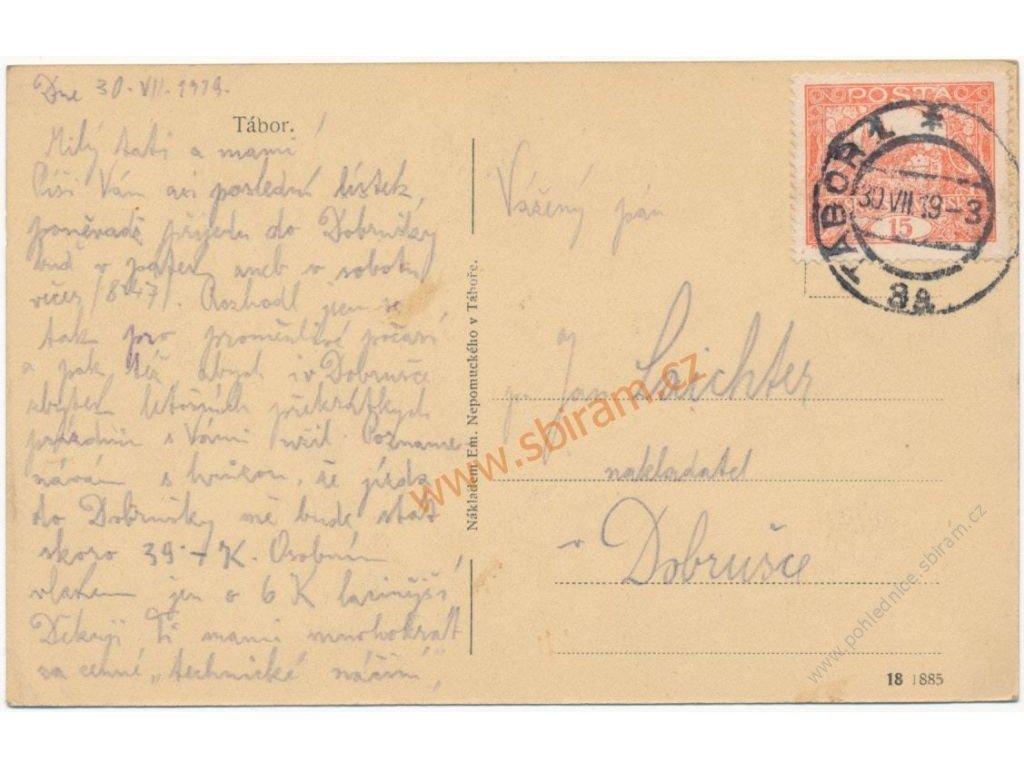 Dne 30. VII. 1919.
Tábor.
Milý tati a mami!
Píši Vám asi poslední lístek
poněvadž přijedu do Dobrušky
buď v pátek aneb v sobotu
večer /8·47/. Rozhodl jsem se
tak pro proměnlivé počasí
a pak též abych i v Dobrušce
zbytek letošních překrátkých
prázdnin s Vámi užil. Pozname-
návám s hrůzou, že jízda
do Dobrušky mě bude stát
skoro 39·- K. Osobním
vlakem jen o 6 K lacinější
Děkuji Ti mami mnohokrát
za cenné „technické náčiní"
Nákladem Em. Nepomuckého v Táboře.
Vážený pán
p. Jan Laichter
nakladatel
v Dobrušce
POSTA
15
TÁBOR 1
30 VII 19-3
8a
18 1885
www.sbiram.cz
www.pohlednice.sbiram.cz